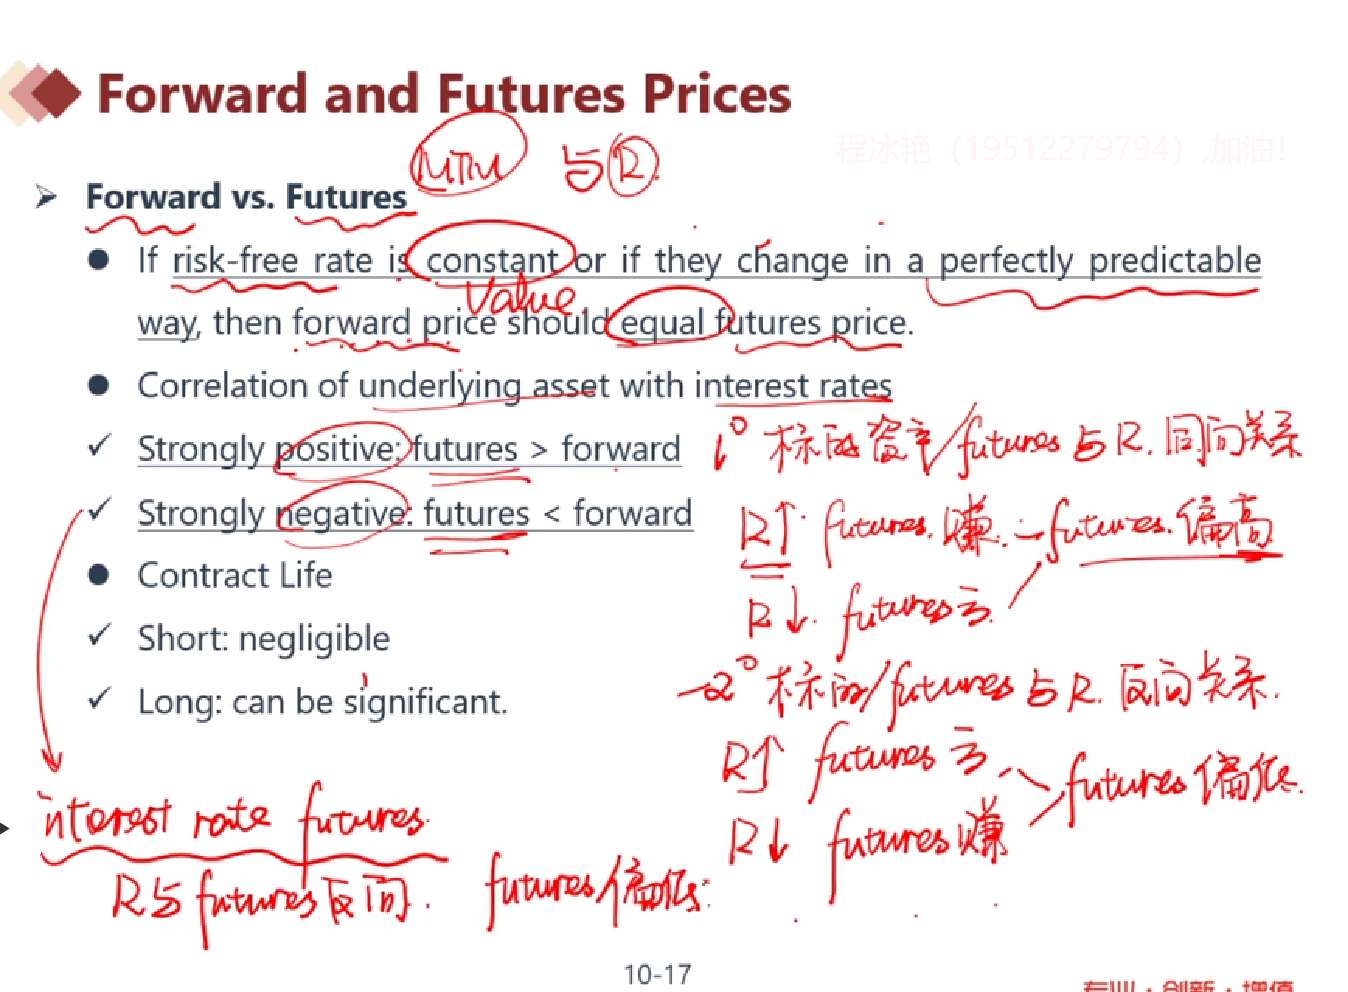 Forward and Futures Prices
程冰艳（19512279794）,加油!
MTM 与R.
Forward vs. Futures
If risk-free rate is constant or if they change in a perfectly predictable
value
way, then forward price should equal futures price.
Correlation of underlying asset with interest rates
Strongly positive: futures > forward
1° 标的资产/futures 与 R. 同向关系
Strongly negative: futures < forward
R↑. futures. 赚. futures. 偏高
Contract Life
R↓. futures亏.
Short: negligible
2° 标的/futures 与 R. 反向关系.
Long: can be significant.
R↑ futures 亏.
futures 偏低.
interest rate futures.
R↓ futures 赚
R与futures反向. futures偏低.
10-17
专业·创新·增值